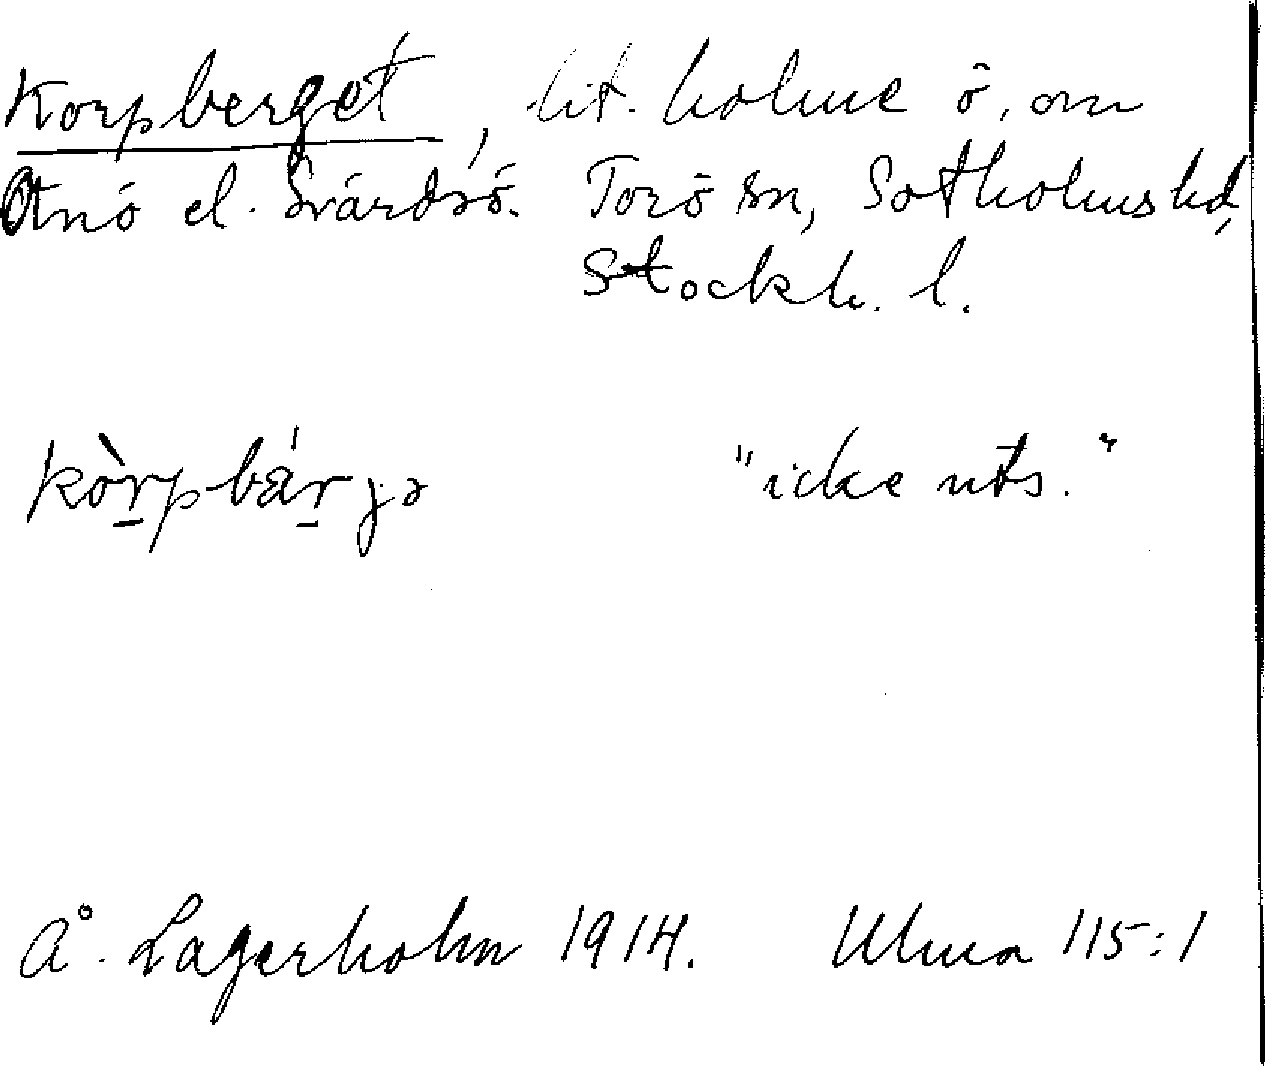 Korpberget, lit. holme ö. om
Otnö el. Svärdsö. Torö sn, Sotholms hd,
Stockh. l.
kòrpbárjə "icke uts."
Å. Lagerholm 1914. Uma 115:1